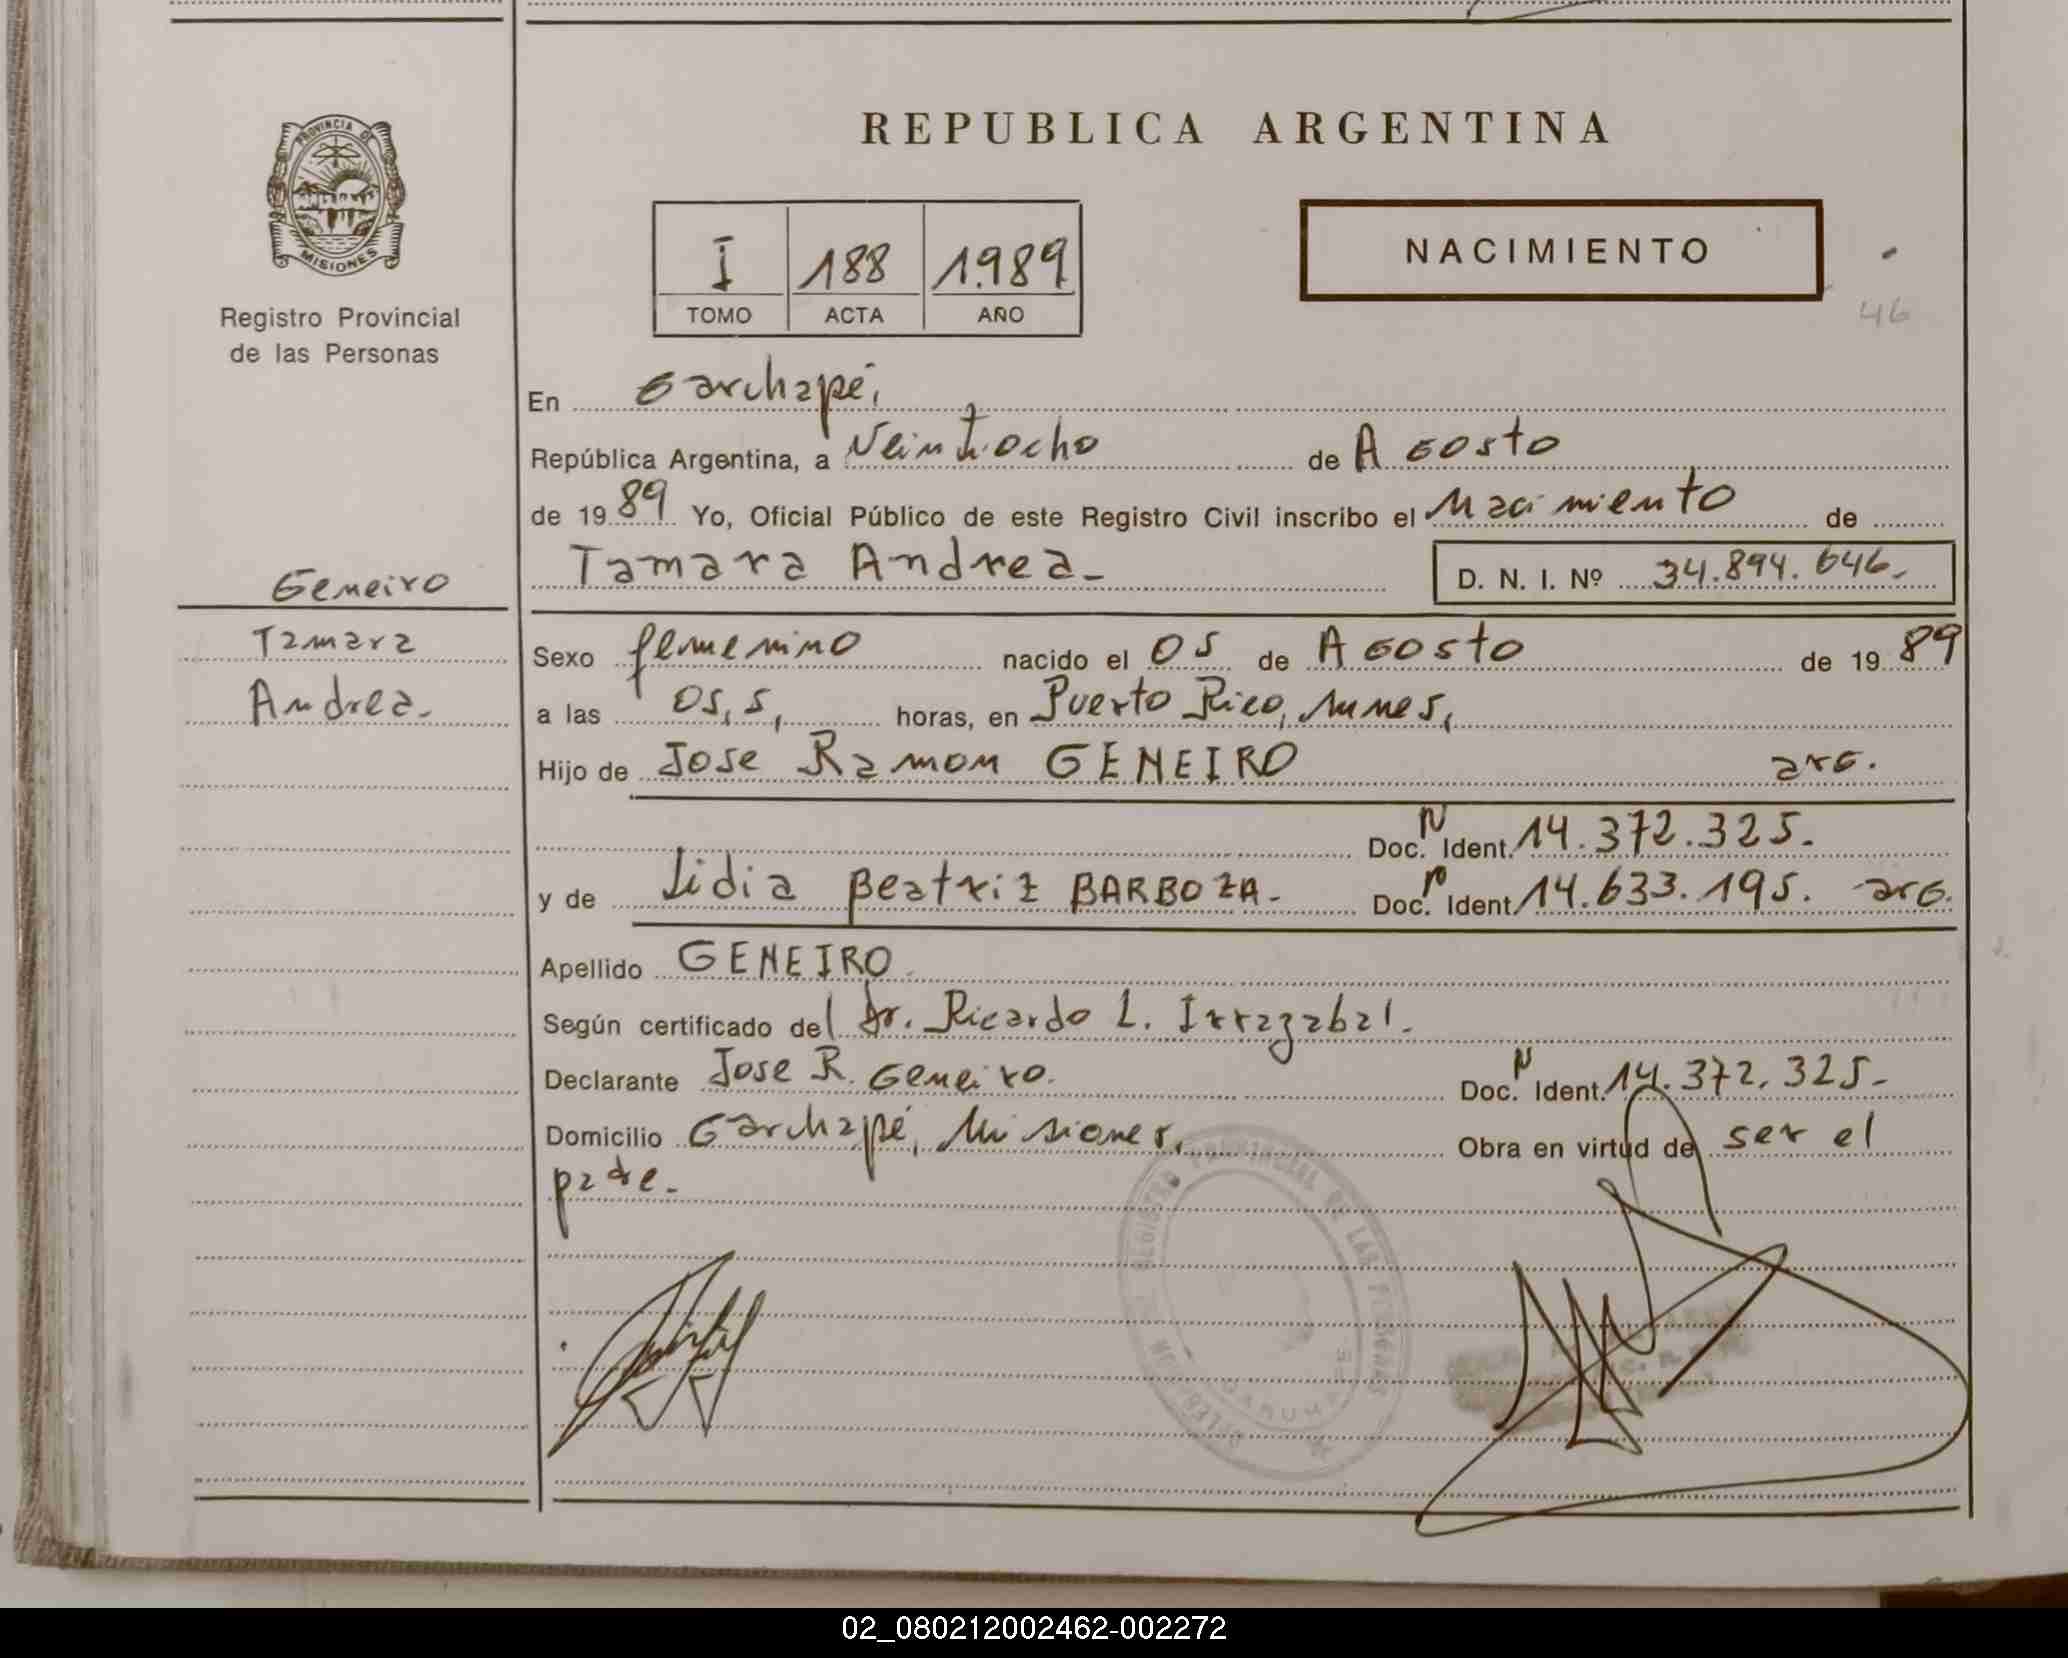 PROVINCIA DE
MISIONES
Registro Provincial
de las Personas
REPUBLICA ARGENTINA
I 188 1.989
TOMO ACTA AÑO
NACIMIENTO
46
En Garuhapé,
República Argentina, a Veintiocho de Agosto
de 1989 Yo, Oficial Público de este Registro Civil inscribo el Nacimiento de
Geneiro
Tamara
Andrea.
Tamara Andrea-
D. N. I. Nº 34.894.646.
Sexo femenino nacido el 05 de Agosto de 1989
a las 05,5, horas, en Puerto Rico,
Hijo de Jose Ramon GENEIRO arg.
Doc. N Ident. 14.372.325.
y de Lidia Beatriz BARBOZA- Doc. Ident 14.633.195. arg.
Apellido GENEIRO
Según certificado del Dr. Ricardo L. Irrazabal.
Declarante Jose R. Geneiro. Doc. N Ident. 14.372.325-
Domicilio Garuhapé, Misiones, Obra en virtud de ser el
padre.
REGISTRO PROVINCIAL DE LAS PERSONAS
GARUHAPE
02_080212002462-002272